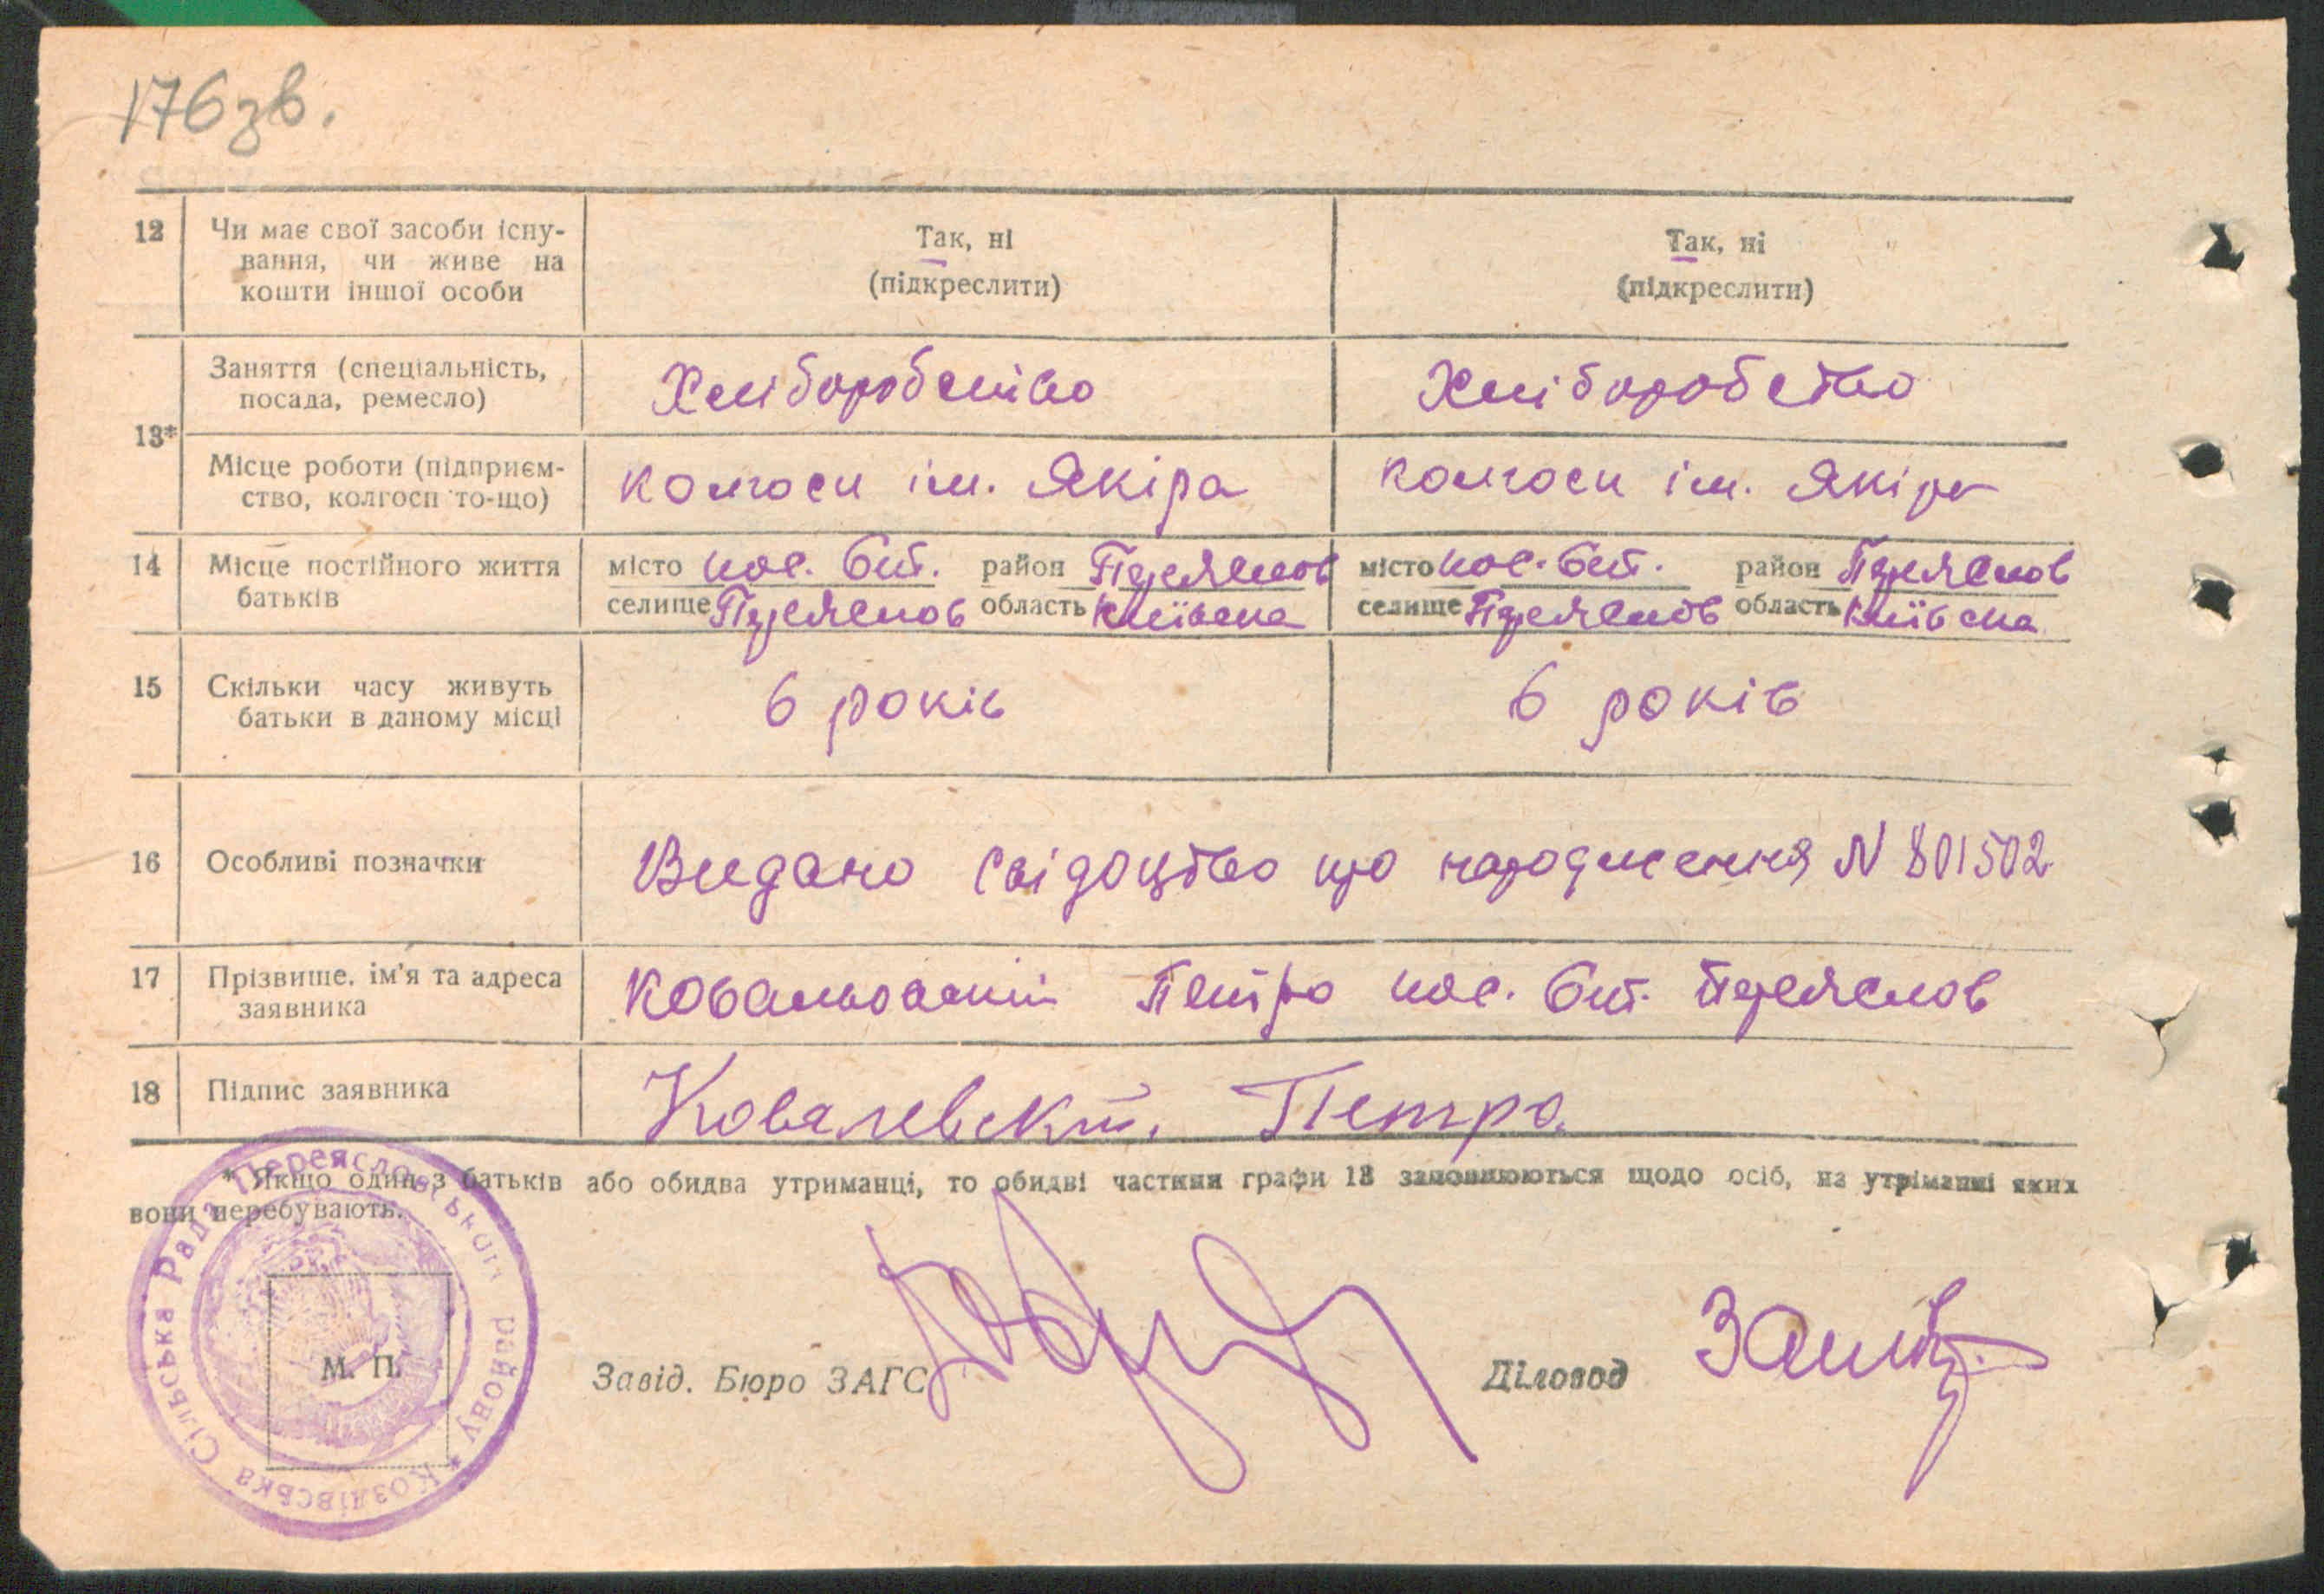 176 зв.
12 Чи має свої засоби існу-
вання, чи живе на
кошти іншої особи
Так, ні
(підкреслити)
Так, ні
(підкреслити)
13*
Заняття (спеціальність,
посада, ремесло)
Хліборобство
Хліборобство
Місце роботи (підприєм-
ство, колгосп то-що)
колгосп ім. Якіра
колгосп ім. Якіра
14 Місце постійного життя
батьків
місто пос. біт. район Переяслов
селище Переяслов область Київська
місто пос. біт. район Переяслов
селище Переяслов область Київська
15 Скільки часу живуть
батьки в даному місці
6 років
6 років
16 Особливі позначки
Видано свідоцтво про народження N 801502
17 Прізвище, ім'я та адреса
заявника
Ковальовский Петро пос. біт. Переяслов
18 Підпис заявника
Ковалевский Петро.
* Якщо один з батьків або обидва утриманці, то обидві частини графи 13 заповнюються щодо осіб, на утріманні яких
вони перебувають.
Козлівська Сільська Рада Переяславського району *
М. П.
Завід. Бюро ЗАГС
Діловод